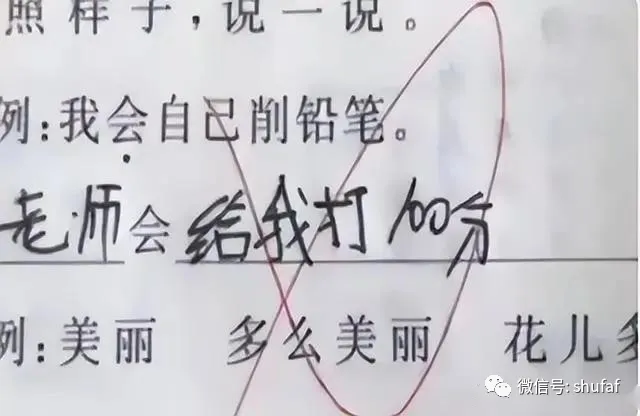 照样子,说一说。
例:我会自己削铅笔。
老师会给我打100分
例:美丽 多么美丽 花儿多
微信号: shufaf